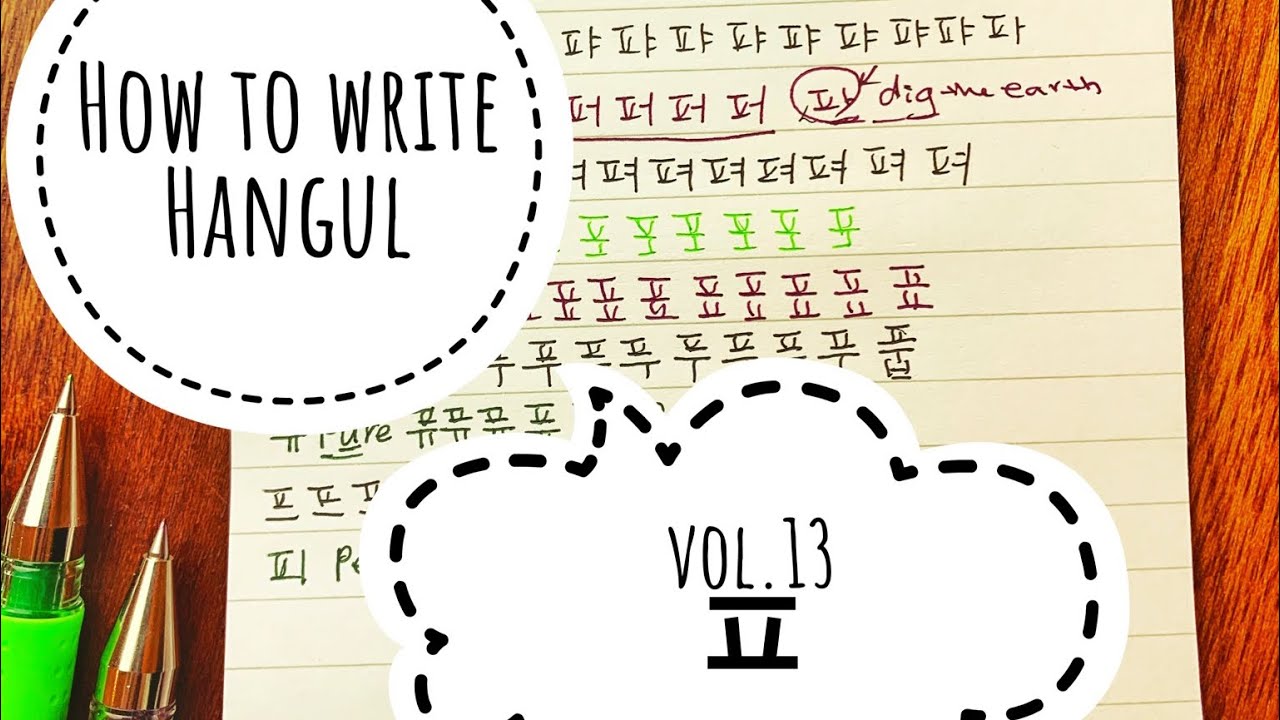 How to write
Hangul
퍄 퍄 퍄 퍄 퍄 퍄 퍄 퍄 파
퍼 퍼 퍼 퍼 파 dig the earth
펴 펴 펴 펴 펴 펴 펴
포 포 포 포 포 포
표 표 표 표 표 표 표 표
푸 푸 푸 푸 푸 푸 푸
Pure 퓨 퓨 퓨 퓨
프 프
피
vol.13
ㅍ